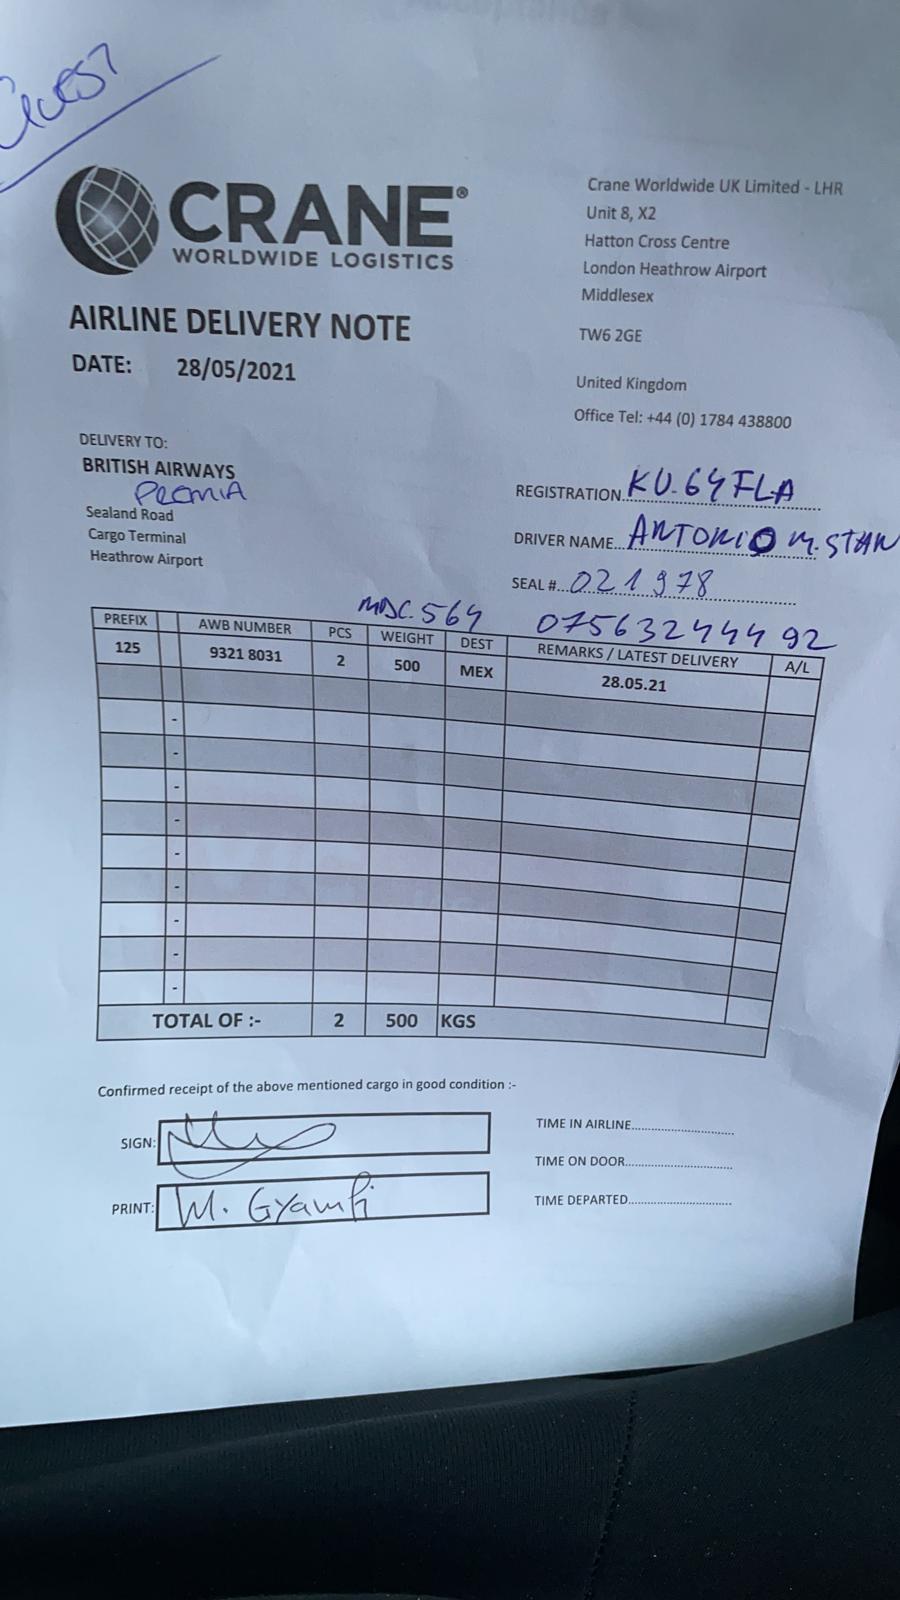 CRANE®
WORLDWIDE LOGISTICS
AIRLINE DELIVERY NOTE
DATE: 28/05/2021
Crane Worldwide UK Limited - LHR
Unit 8, X2
Hatton Cross Centre
London Heathrow Airport
Middlesex
TW6 2GE
United Kingdom
Office Tel: +44 (0) 1784 438800
DELIVERY TO:
BRITISH AIRWAYS
Sealand Road
Cargo Terminal
Heathrow Airport
REGISTRATION KU.64FLA
DRIVER NAME ANTONIO M. STAN
SEAL # 021978
564 07563244492
PREFIX AWB NUMBER PCS WEIGHT DEST REMARKS / LATEST DELIVERY A/L
125 9321 8031 2 500 MEX 28.05.21
-
-
-
-
-
-
-
-
-
TOTAL OF :- 2 500 KGS
Confirmed receipt of the above mentioned cargo in good condition :-
SIGN:
PRINT: M. Gyamfi
TIME IN AIRLINE
TIME ON DOOR
TIME DEPARTED